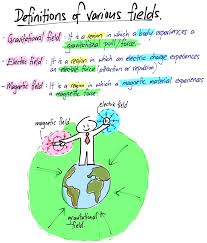 Definitions of various fields.
- Gravitational field : It is a region in which a body experiences a gravitational pull/force.
- Electric field : It is a region in which an electric charge experiences an electric force (attraction or repulsion)
- Magnetic field : It is a region in which a magnetic material experiences a magnetic force
electric field
magnetic field
gravitational field